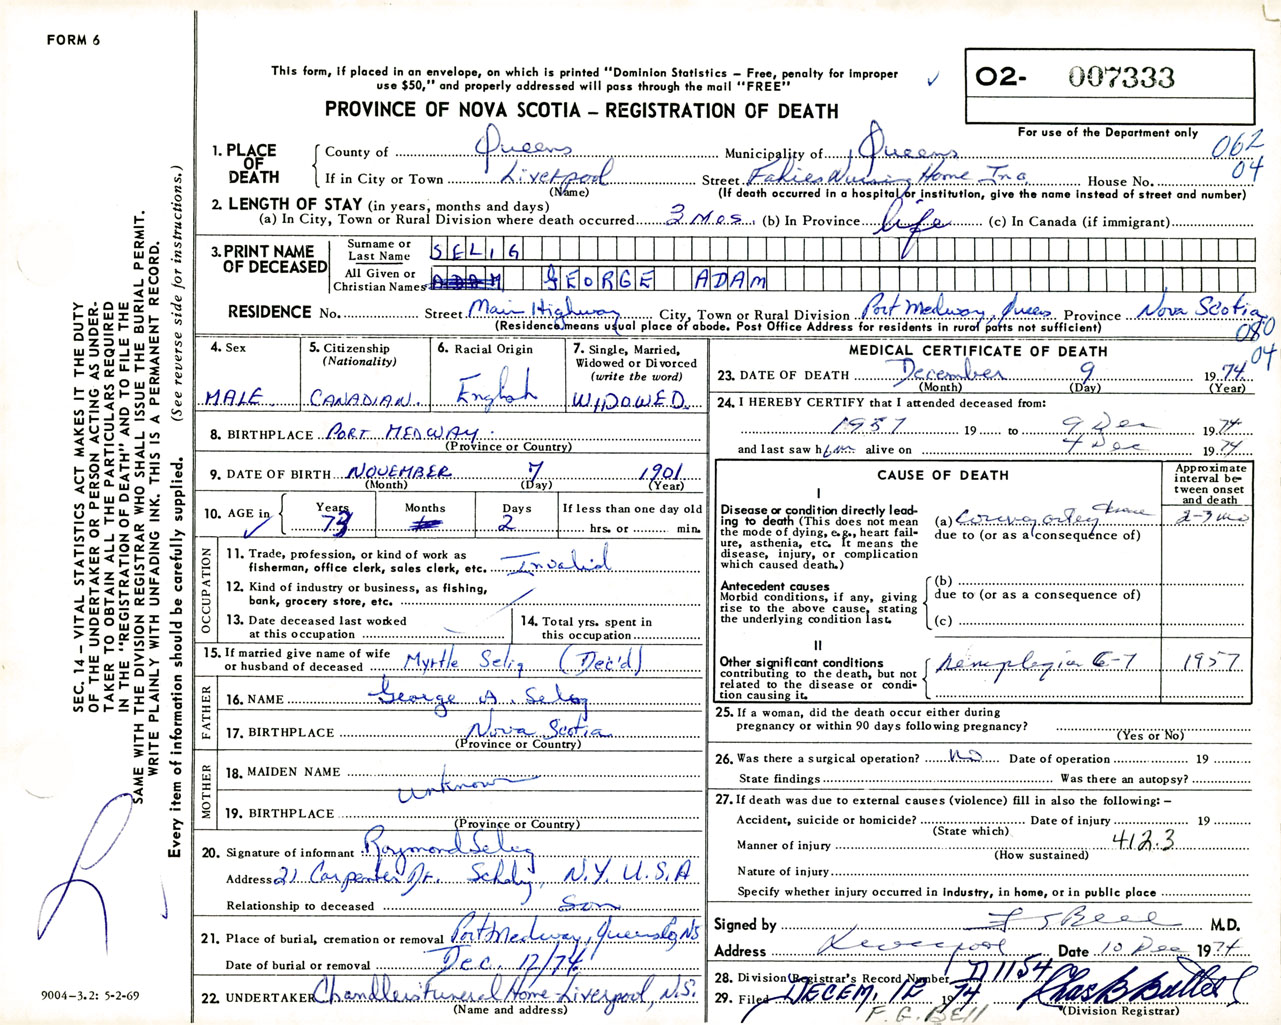 FORM 6
This form, if placed in an envelope, on which is printed "Dominion Statistics – Free, penalty for improper
use $50," and properly addressed will pass through the mail "FREE"
O2- 007333
For use of the Department only
PROVINCE OF NOVA SCOTIA – REGISTRATION OF DEATH
062
04
1. PLACE OF DEATH
County of Queens Municipality of Queens
If in City or Town Liverpool Street Fakies Nursing Home Inc House No.
(Name) (If death occurred in a hospital or institution, give the name instead of street and number)
2. LENGTH OF STAY (in years, months and days)
(a) In City, Town or Rural Division where death occurred 3 Mos. (b) In Province life (c) In Canada (if immigrant)
3. PRINT NAME OF DECEASED
Surname or Last Name SELIG
All Given or Christian Names ADAM GEORGE ADAM
RESIDENCE No. Street Main Highway City, Town or Rural Division Port Medway, Queens Province Nova Scotia
(Residence means usual place of abode. Post Office Address for residents in rural parts not sufficient)
080
04
4. Sex
MALE
5. Citizenship
(Nationality)
CANADIAN
6. Racial Origin
English
7. Single, Married,
Widowed or Divorced
(write the word)
WIDOWED
8. BIRTHPLACE PORT MEDWAY
(Province or Country)
9. DATE OF BIRTH NOVEMBER 7 1901
(Month) (Day) (Year)
10. AGE in
Years 73
Months
Days 2
If less than one day old
hrs. or min.
OCCUPATION
11. Trade, profession, or kind of work as
fisherman, office clerk, sales clerk, etc. Invalid
12. Kind of industry or business, as fishing,
bank, grocery store, etc.
13. Date deceased last worked
at this occupation
14. Total yrs. spent in
this occupation
15. If married give name of wife
or husband of deceased Myrtle Selig (Dec'd)
FATHER
16. NAME George A. Selig
17. BIRTHPLACE Nova Scotia
(Province or Country)
MOTHER
18. MAIDEN NAME
unknown
19. BIRTHPLACE
(Province or Country)
20. Signature of informant Raymond Selig
Address 21 Carpenter N.Y. U.S.A
Relationship to deceased Son
21. Place of burial, cremation or removal Port Medway, Queens Co, NS
Date of burial or removal Dec. 12/74
22. UNDERTAKER Chandlers Funeral Home Liverpool, N.S.
(Name and address)
MEDICAL CERTIFICATE OF DEATH
23. DATE OF DEATH December 9 1974
(Month) (Day) (Year)
24. I HEREBY CERTIFY that I attended deceased from:
1957 19 to 9 Dec 1974
and last saw him alive on 4 Dec 1974
CAUSE OF DEATH
Approximate
interval be-
tween onset
and death
I
Disease or condition directly lead-
ing to death (This does not mean
the mode of dying, e.g., heart fail-
ure, asthenia, etc. It means the
disease, injury, or complication
which caused death.)
(a) 2-3 mo
due to (or as a consequence of)
Antecedent causes
Morbid conditions, if any, giving
rise to the above cause, stating
the underlying condition last.
(b)
due to (or as a consequence of)
(c)
II
Other significant conditions
contributing to the death, but not
related to the disease or condi-
tion causing it.
C-7 1957
25. If a woman, did the death occur either during
pregnancy or within 90 days following pregnancy?
(Yes or No)
26. Was there a surgical operation? No Date of operation 19
State findings Was there an autopsy?
27. If death was due to external causes (violence) fill in also the following: –
Accident, suicide or homicide? Date of injury 19
(State which)
Manner of injury 412.3
(How sustained)
Nature of injury
Specify whether injury occurred in industry, in home, or in public place
Signed by M.D.
Address Liverpool Date 10 Dec 1974
28. Division Registrar's Record Number D1154
29. Filed DECEM. 1974
F. G. Bell
(Division Registrar)
SEC. 14 – VITAL STATISTICS ACT MAKES IT THE DUTY
OF THE UNDERTAKER OR PERSON ACTING AS UNDER-
TAKER TO OBTAIN ALL THE PARTICULARS REQUIRED
IN THE "REGISTRATION OF DEATH" AND TO FILE THE
SAME WITH THE DIVISION REGISTRAR WHO SHALL ISSUE THE BURIAL PERMIT.
WRITE PLAINLY WITH UNFADING INK. THIS IS A PERMANENT RECORD.
Every item of information should be carefully supplied. (See reverse side for instructions.)
9004-3.2: 5-2-69